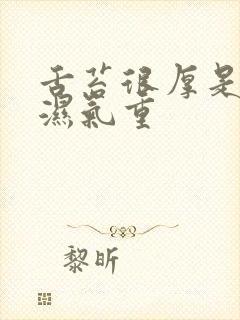 舌苔很厚是
濕氣重
黎昕